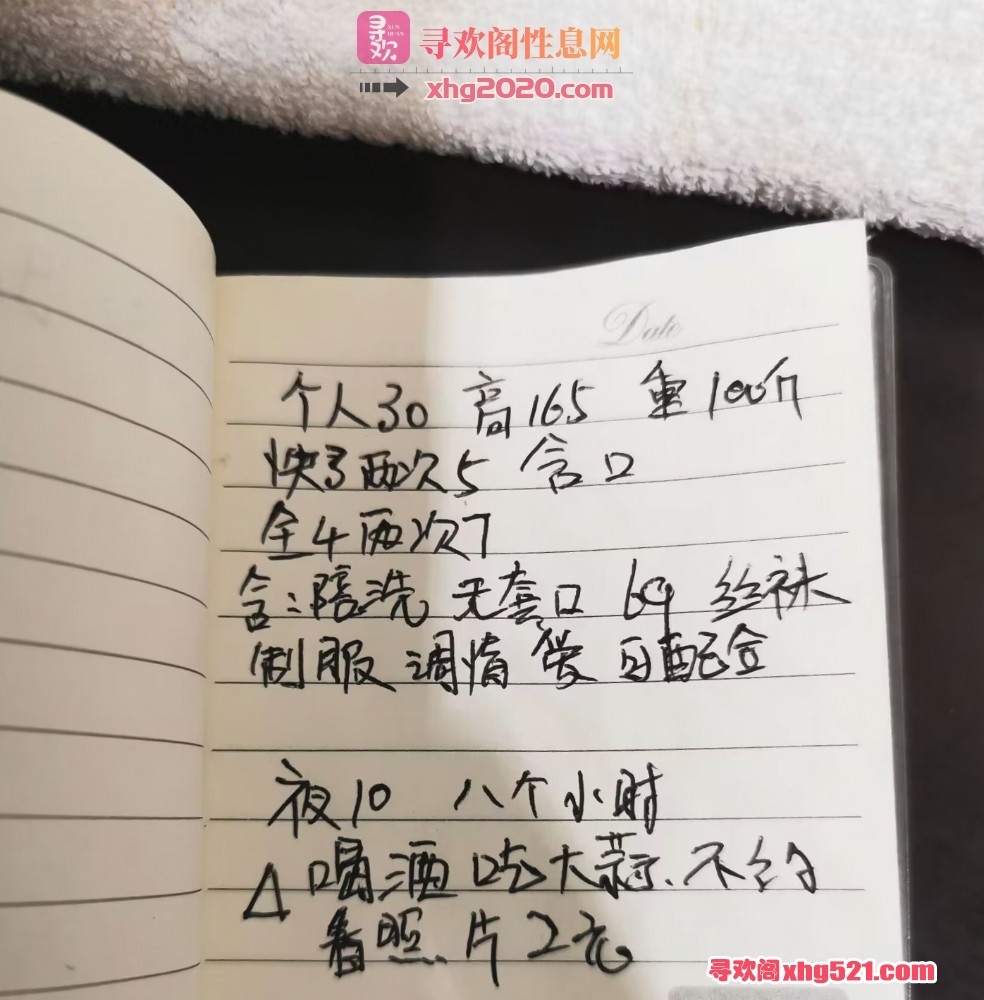 寻欢 XUN HUAN 寻欢阁性息网
xhg2020.com
Date
个人30 高165 重100斤
快3两次5 含口
全4两次7
含:陪洗 无套口 69 丝袜
制服 调情 配合
夜10 八个小时
△喝酒吃大蒜、不约
看照片2元
寻欢阁xhg521.com